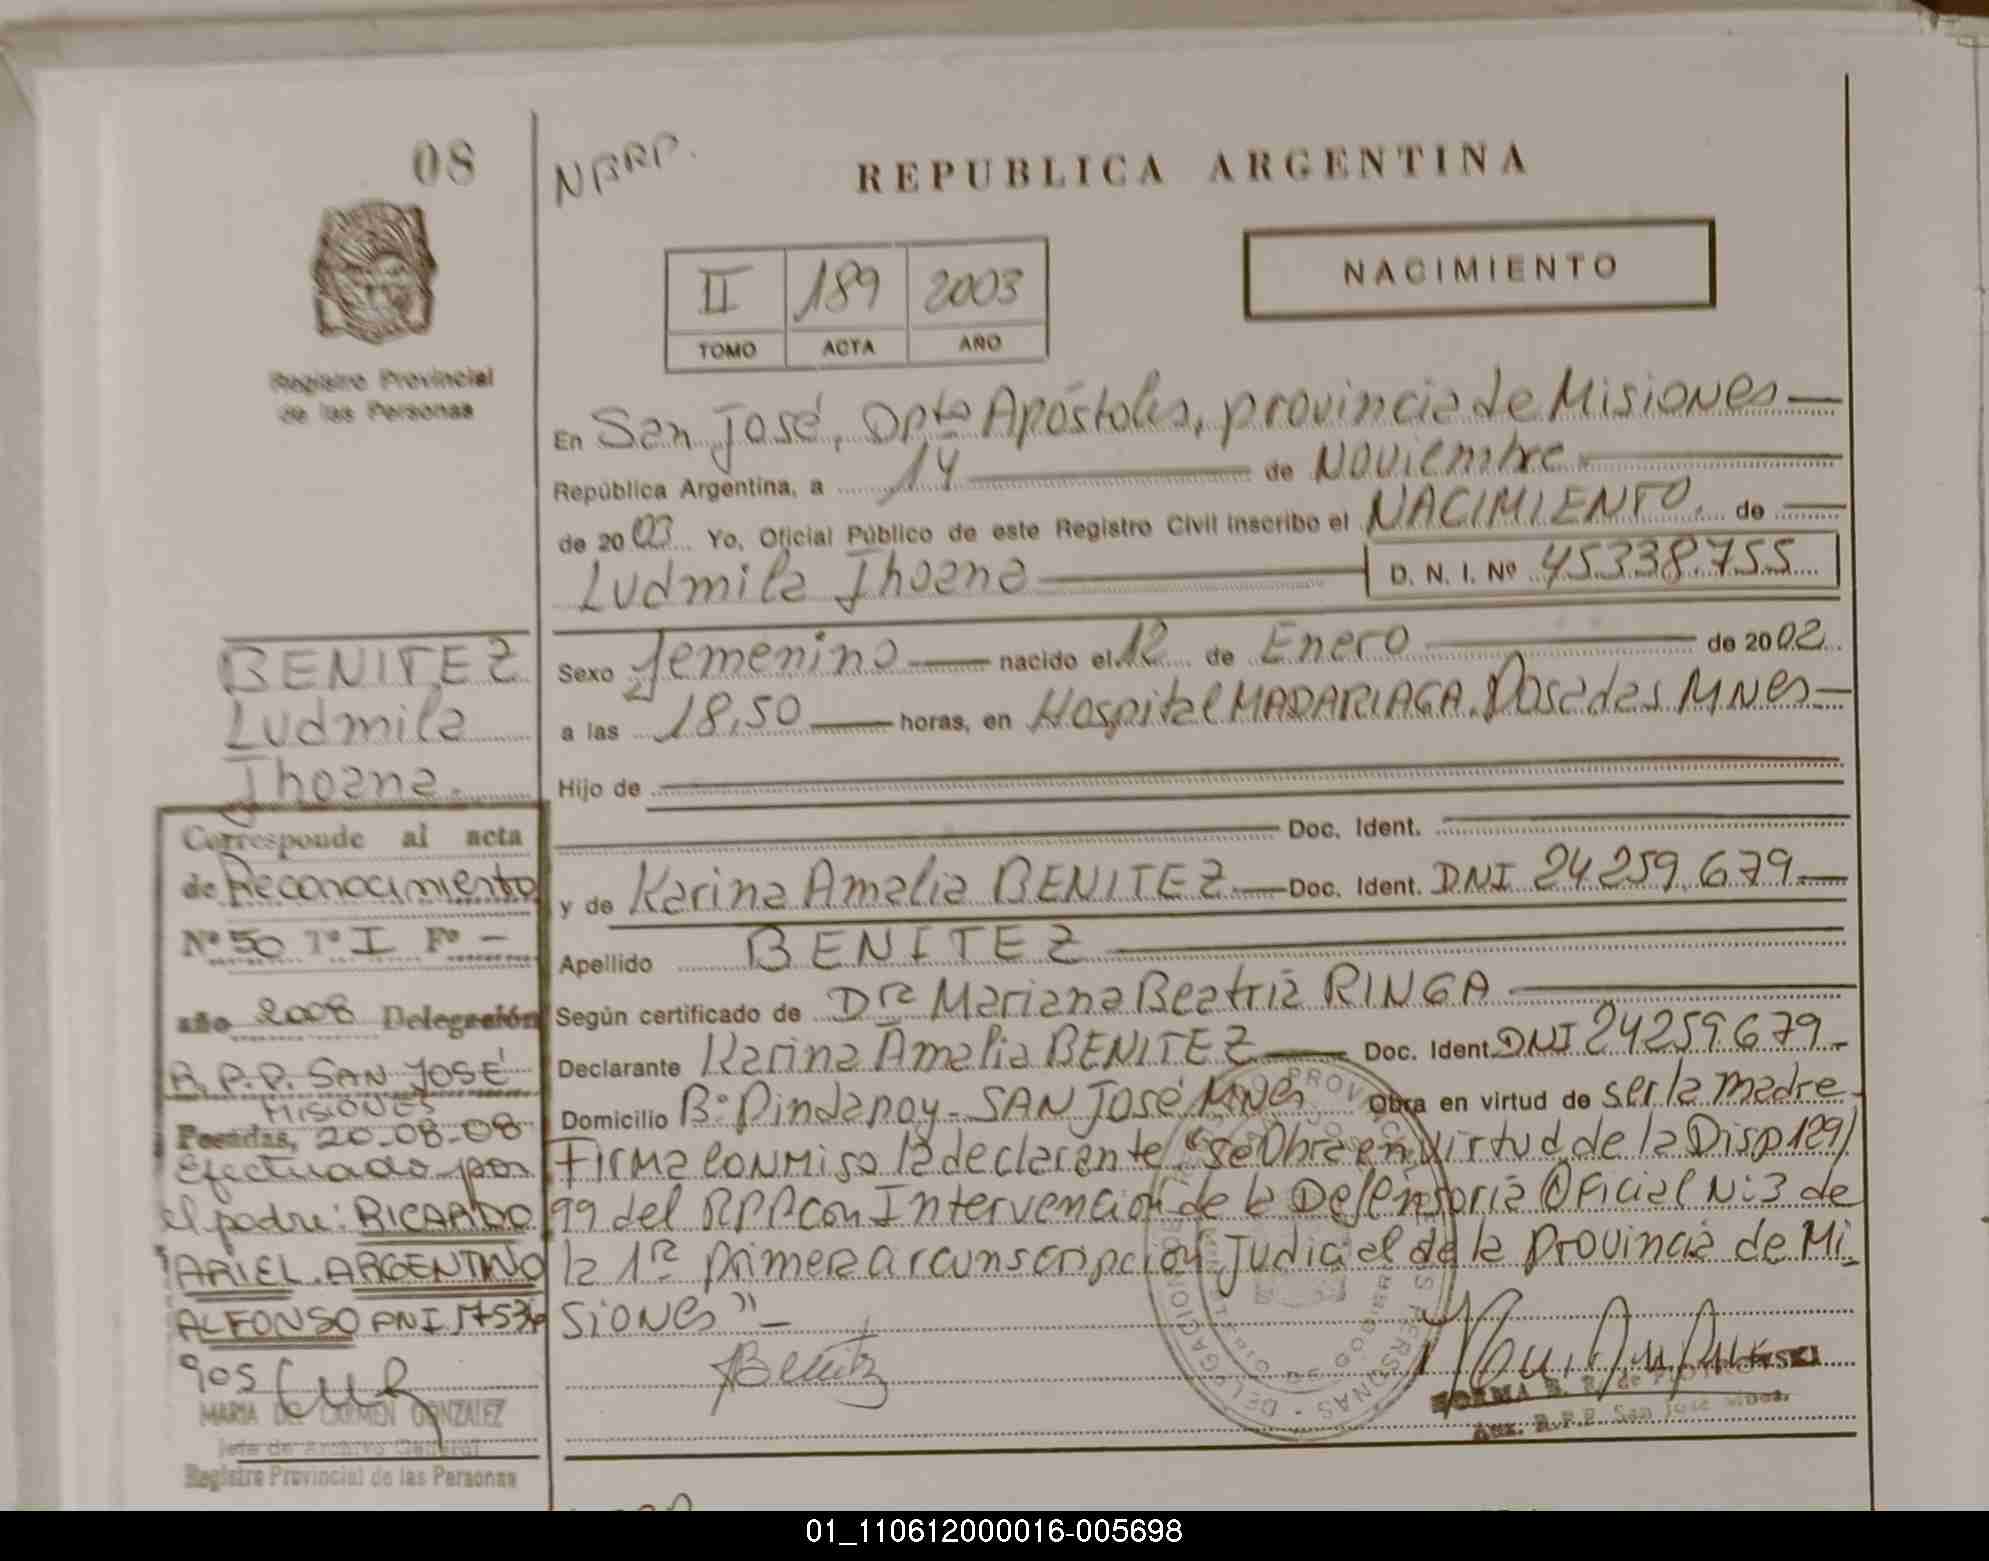 08
NRRP.
REPUBLICA ARGENTINA
NACIMIENTO
II 189 2003
TOMO ACTA AÑO
Registro Provincial
de las Personas
En San José, Dpto Apóstoles, provincia de Misiones
República Argentina, a 14 de Noviembre
de 2003 Yo, Oficial Público de este Registro Civil inscribo el NACIMIENTO. de
Ludmila Jhoana D. N. I. Nº 45338.755
BENITEZ
Ludmila
Jhoana.
Sexo femenino nacido el 12 de Enero de 2002
a las 18,50 horas, en Hospital MADARIAGA. Posadas MNes
Hijo de
Doc. Ident.
y de Karina Amalia BENITEZ Doc. Ident. DNI 24 259.679
Apellido BENITEZ
Según certificado de Dra Mariana Beatriz RINGA
Declarante Karina Amalia BENITEZ Doc. Ident DNI 24259679
Domicilio Bº Pindapoy - SAN JOSÉ MNes Obra en virtud de ser la madre
Firma conmigo la declarante "se Obra en virtud de la Disp 129/
99 del RPP con Intervencion de la Defensoria Oficial N:3 de
la 1ra primera circunscripcion Judicial de la Provincia de Mi
siones" -
Benitz
NORMA B. R. de
Aux. R.P.P. San José Mnes.
Corresponde al acta
de Reconocimiento
Nº 50 Tº I Fº -
año 2008 Delegación
R.P.P. SAN JOSÉ
MISIONES
Posadas, 20-08-08
Efectuado por
el padre: RICARDO
ARIEL ARGENTINO
ALFONSO DNI
905
MARIA DEL CARMEN GONZALEZ
Jefe de Archivo General
Registro Provincial de las Personas
01_110612000016-005698